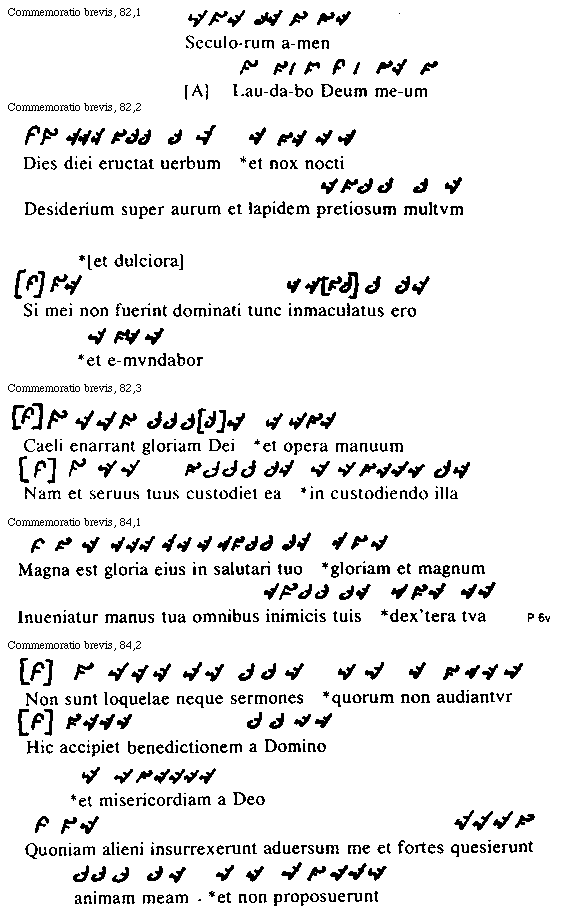 Commemoratio brevis, 82,1
Seculo-rum a-men
[A] Lau-da-bo Deum me-um
Commemoratio brevis, 82,2
Dies diei eructat uerbum *et nox nocti
Desiderium super aurum et lapidem pretiosum multvm
*[et dulciora]
Si mei non fuerint dominati tunc inmaculatus ero
*et e-mvndabor
Commemoratio brevis, 82,3
Caeli enarrant gloriam Dei *et opera manuum
Nam et seruus tuus custodiet ea *in custodiendo illa
Commemoratio brevis, 84,1
Magna est gloria eius in salutari tuo *gloriam et magnum
Inueniatur manus tua omnibus inimicis tuis *dex'tera tva P 6v
Commemoratio brevis, 84,2
Non sunt loquelae neque sermones *quorum non audiantvr
Hic accipiet benedictionem a Domino
*et misericordiam a Deo
Quoniam alieni insurrexerunt aduersum me et fortes quesierunt
animam meam . *et non proposuerunt